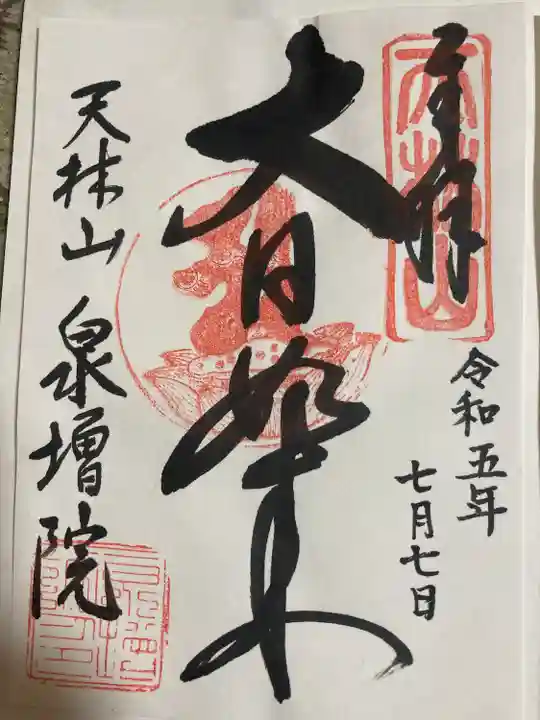 奉拝
天林山
令和五年
七月七日
大日如来
天林山 泉増院